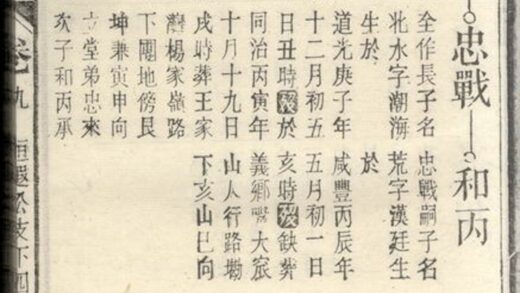 忠戰
全作長子名
水字潮海
生於
道光庚子年
十二月初五
日丑時歿於
同治丙寅年
十月十九日
戌時葬王家
楊家嶺路
下團地傍艮
坤兼寅申向
立堂弟忠來
次子和丙承
和丙
忠戰嗣子名
荒字漢廷生
於
咸豐丙辰年
五月初一日
亥時歿缺葬
義鄉嘴大
山人行路墈
下亥山巳向
卷九
公支下四